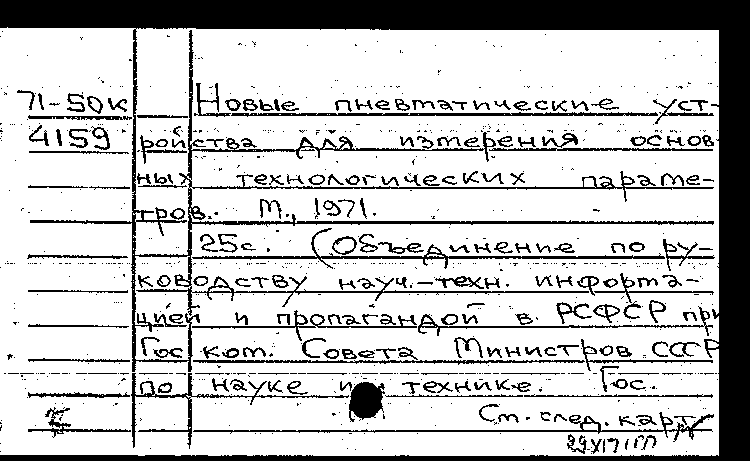 71-50к Новые пневматические уст-
4159 ройства для измерения основ
ных технологических параме-
тров. М., 1971.
25с. (Объединение по ру-
ководству науч.-техн. информа-
цией и пропагандой в РСФСР при
Гос ком. Совета Министров СССР
по науке и технике. Гос.
См. след. карт